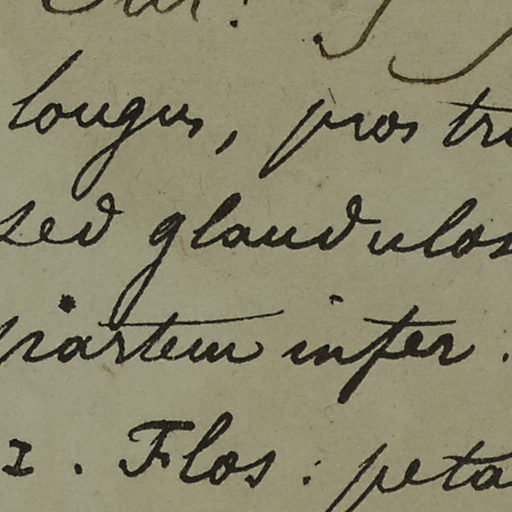 longus, prostra
sed glandulos
partem infer.
2. Flos: peta